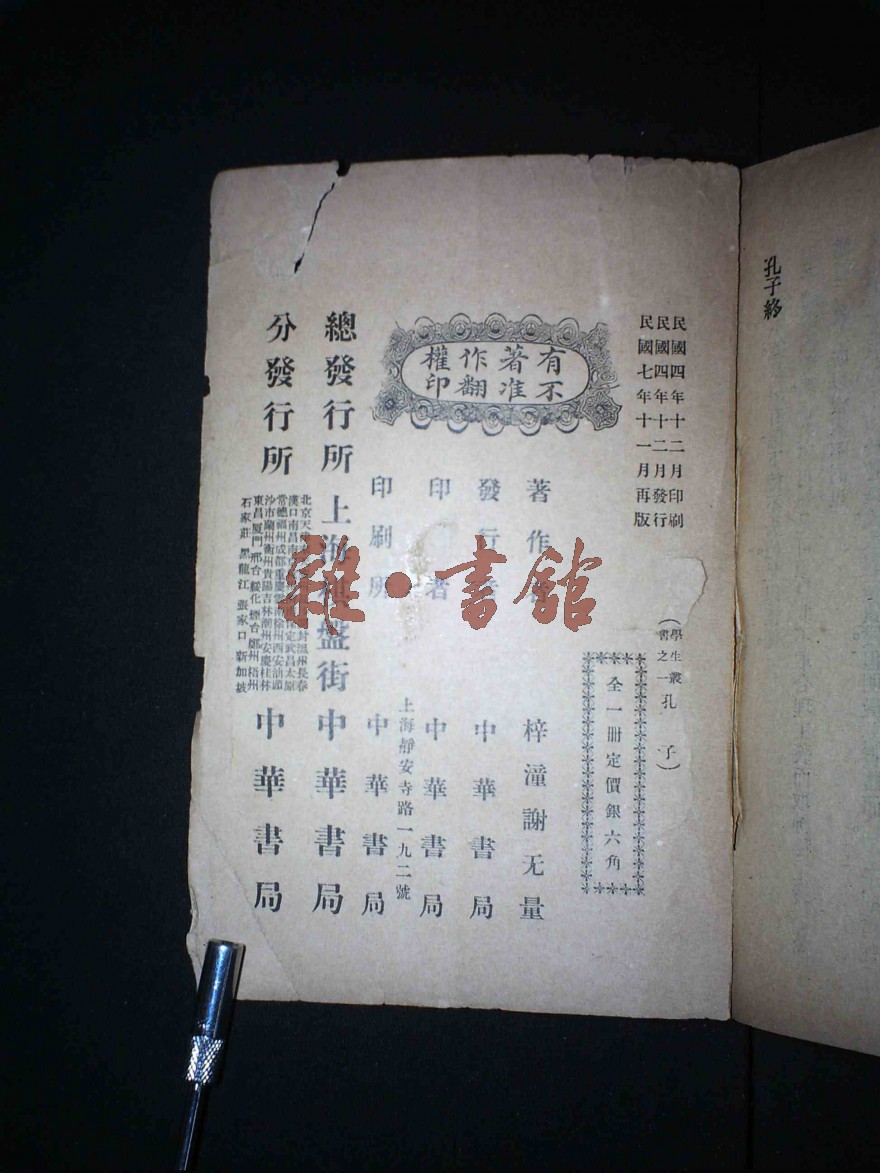 孔子終
民國四年十二月印刷
民國四年十二月發行
民國七年十一月再版
(學生叢書之一 孔子)
全一册定價銀六角
有著作權
不准翻印
著作 梓潼謝无量
發行 中華書局
印 者 中華書局
上海靜安寺路一九二號
印刷所 中華書局
總發行所 上海 盤街 中華書局
分發行所
北京天 長春
漢口南昌南 封溫州
常德福州成都重慶 保定武昌太原
沙市蘭州衡州貴陽吉林潮州安慶桂林
東昌厦門邢台綏化煙台鄭州梧州
石家莊 黑龍江 張家口 新加坡
中華書局
雜·書館